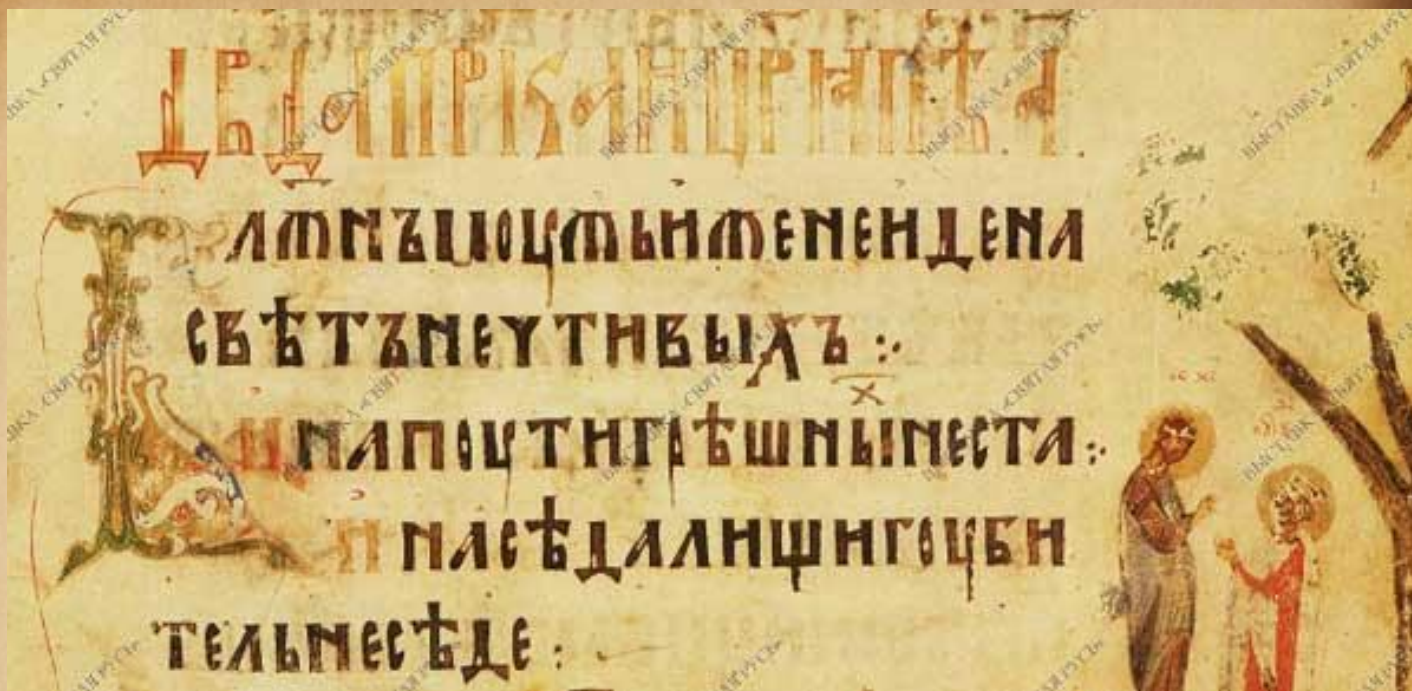 ДВДА ПРРКА И ЦРꙖ ПѢ. А.
БЛЖНЪ МОУЖЬ ИЖЕ НЕ ИДЕ НА
СВѢТЪ НЕЧТИВЫХЪ :·
И НА ПОУТИ ГРѢШНЫХ НЕ СТА :·
И НА СѢДАЛИЩИ ГОУБИ
ТЕЛЬ НЕ СѢДЕ :
ІС ХС
ВЫСТАВКА «СВЯТАЯ РУСЬ»